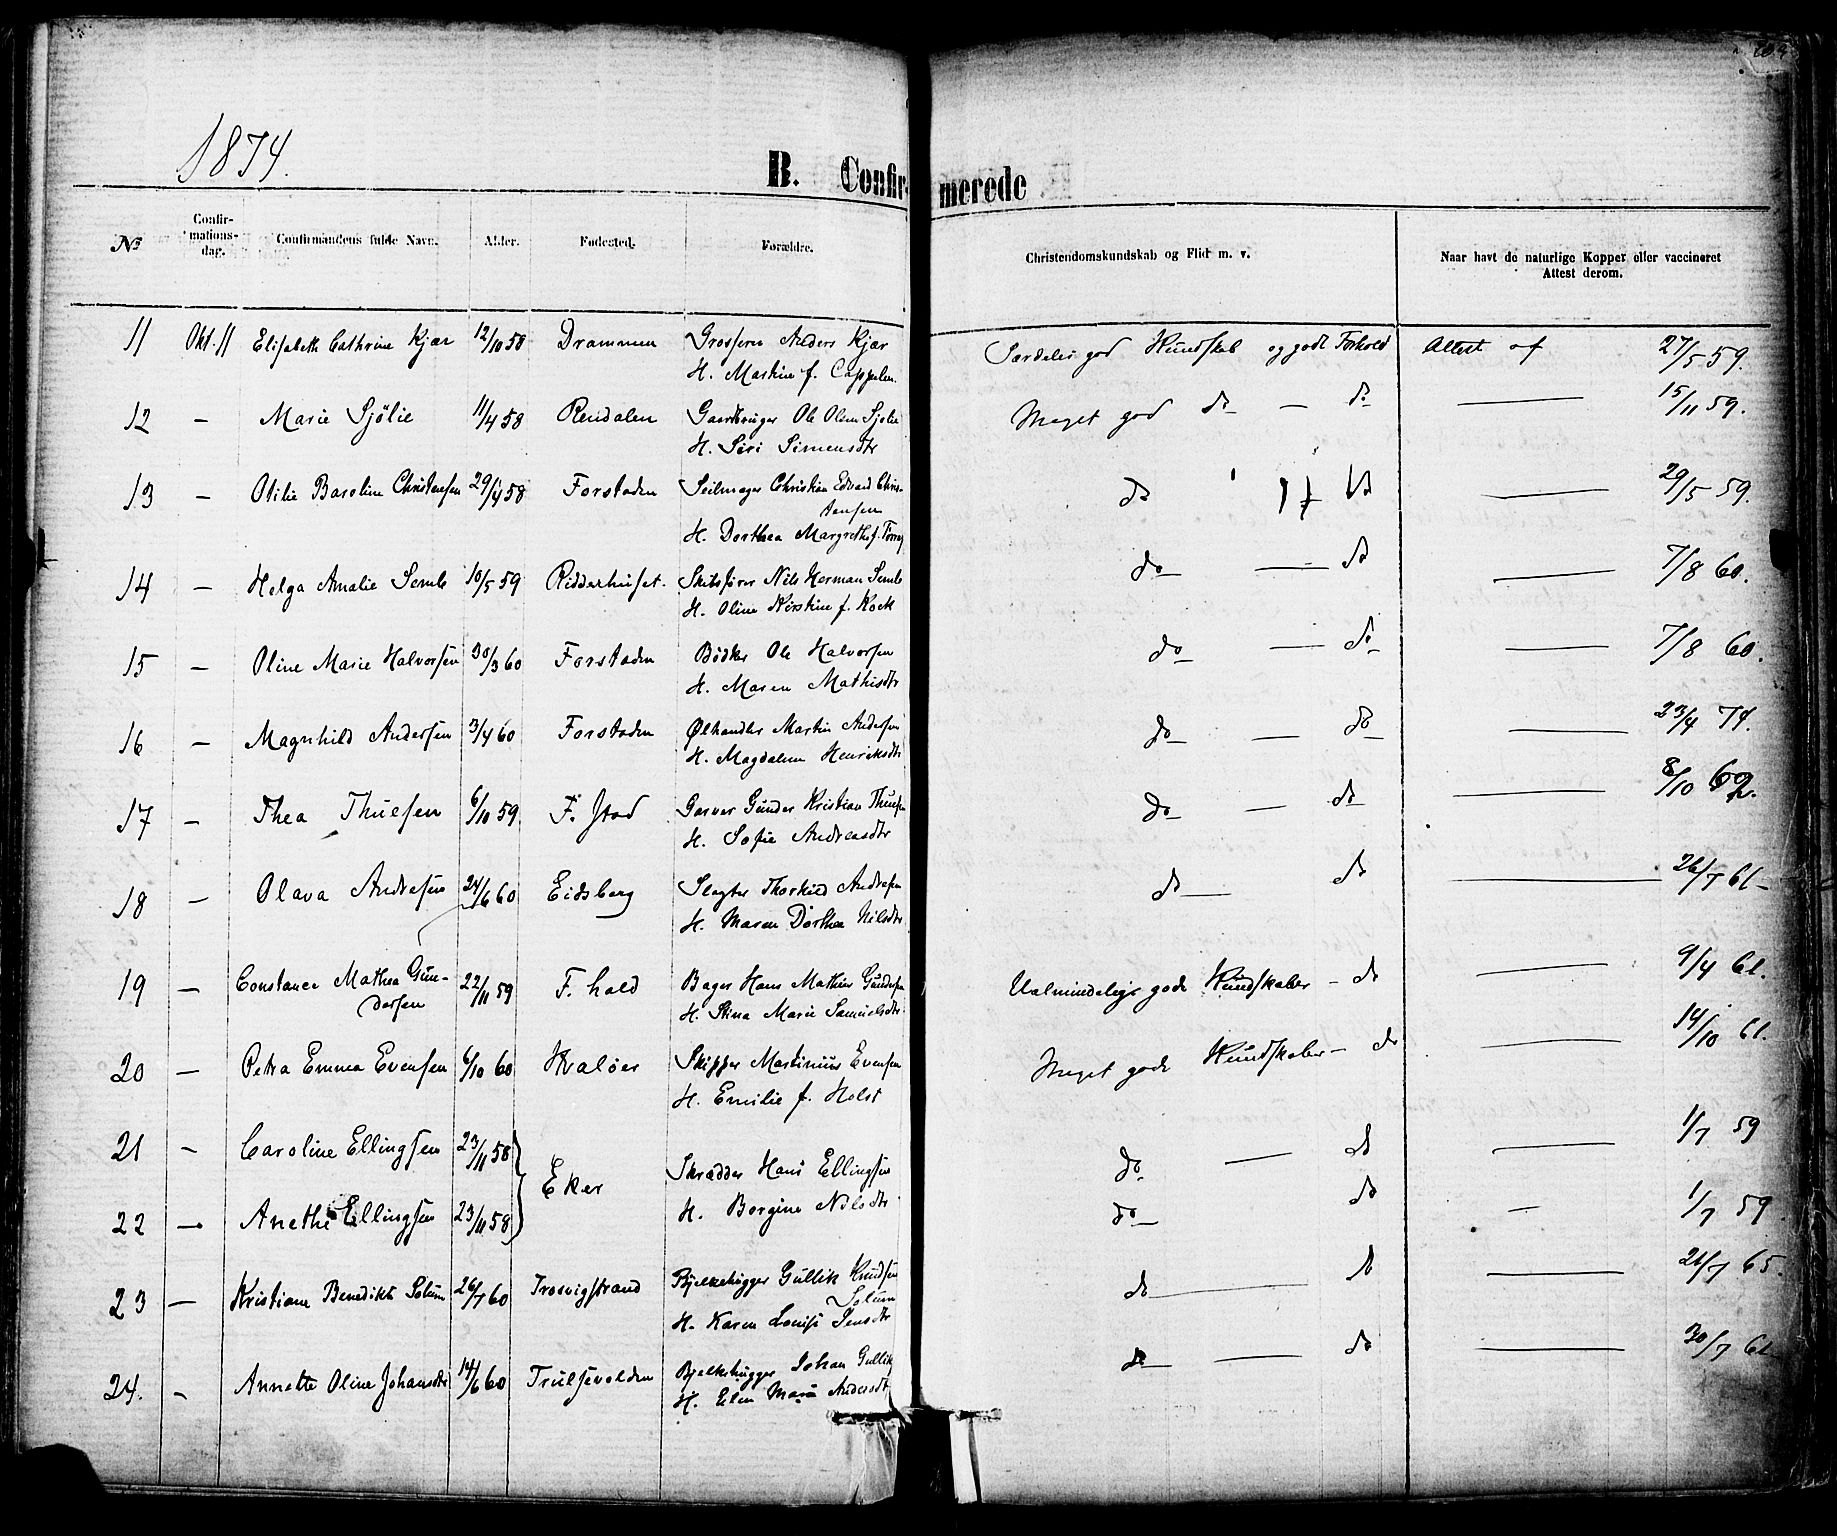 1874.
B. Confirmerede
№
Confirmations-dag.
Confirmandens fulde Navn.
Alder.
Fødested.
Forældre.
Christendomskundskab og Flid m. v.
Naar havt de naturlige Kopper eller vaccineret
Attest derom.
11 Okt. 11 Elisabeth Cathrine Kjær 12/10 58 Drammen Grosserer Anders Kjær Særdeles god Kundskab og godt Forhold Attest af 27/5 59.
H. Martine f. Cappelen.
12 — Marie Sjölie 11/4 58 Rendalen Gaardbruger Ole Olsen Sjölie Meget god do — do — 15/11 59.
H. Siri Simensdtr
13 — Otilie Baroline Christensen 29/4 58 Forstaden Seilmager Christian Edvard Chris- do do — 29/5 59.
tensen
H. Dorthea Margrethe f.
14 — Helga Amalie Semb 10/5 59 Ridderhuset. Nils Herman Semb do — do — 7/8 60.
H. Oline Kirstine f. Kock
15 — Oline Marie Halvorsen 30/3 60 Forstaden Bödker Ole Halvorsen do — do — 7/8 60.
H. Maren Mathisdtr
16 — Magnhild Andersen 3/4 60 Forstaden Ølhandler Martin Andersen do — do — 23/4 74.
H. Magdalene Henriksdtr
17 — Thea Thuesen 6/10 59 F. Stad Garver Gunder Kristian Thuesen do — do — 8/10
H. Sofie Andreasdtr
18 — Olava Andresen 24/6 60 Eidsberg Slagter Thorkild Andresen do — do — 26/7 61
H. Maren Dorthea Nilsdtr
19 — Constance Mathea Gun- 22/11 59 F. hald Bager Hans Mathias Gundersen Ualmindelig gode Kundskaber — do — 9/4 61.
dersen
H. Stina Marie Samuelsdtr
20 — Petra Emma Evensen 6/10 60 Hvaløer Skipper Martinius Evensen Meget gode Kundskaber — do — 14/10 61.
H. Emilie f. Holst
21 — Caroline Ellingsen 23/11 58 Eker Skrædder Hans Ellingsen do — do — 1/7 59
H. Borgine Nilsdtr
22 — Anethe Ellingsen 23/11 58 do — do — 1/7 59.
23 — Kristiane Benedikte Solum 26/7 60 Trosvigstrand Bjelkehugger Gullik Knudsen do — do — 26/7 65.
Solum
H. Karen Louise Jensdtr
24. — Annette Oline Johansdtr 14/6 60 Trulsevolden Bjelkehugger Johan Gullik do — do — 30/7 61
H. Elen Marie Andersdtr